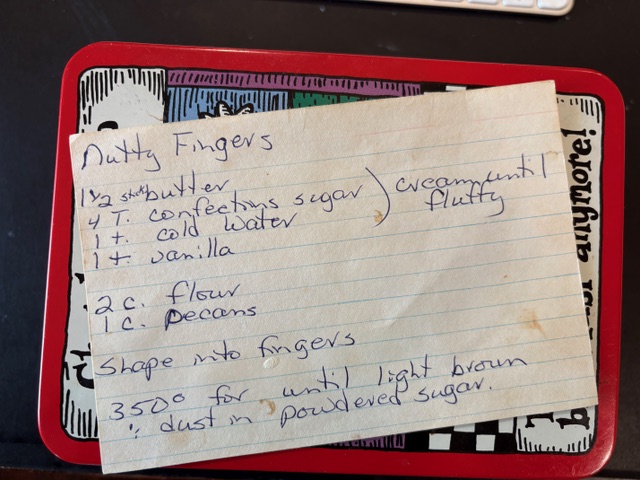 Nutty Fingers
1 1/2 sticks butter
4 T. confections sugar
1 t. cold water
1 t. vanilla
) cream until
fluffy
2 c. flour
1 c. pecans
Shape into fingers
350° for until light brown
; dust in powdered sugar.
anymore!